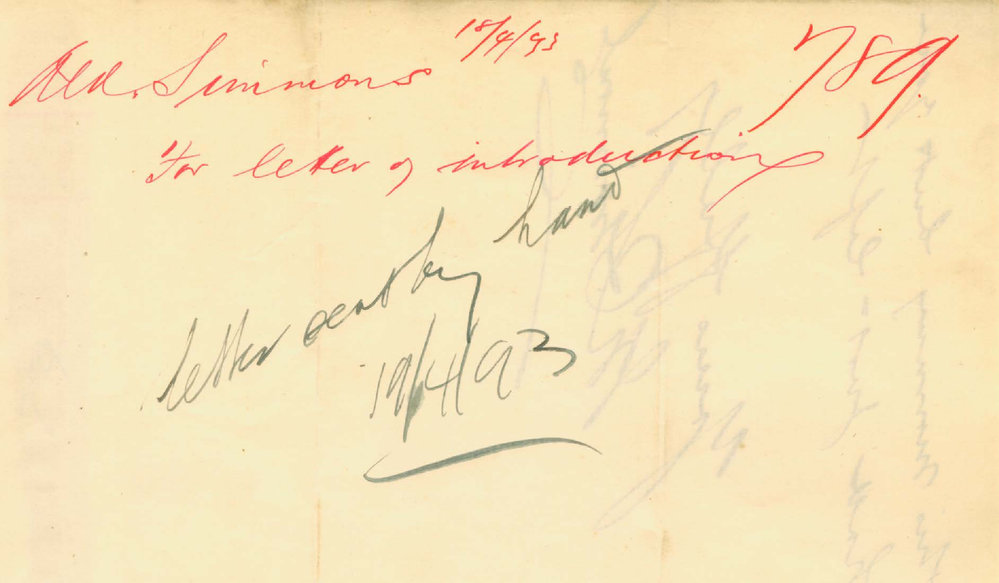 18/4/93
Ald. Simmons
789
For letter of introduction
letter sent by hand
19/4/93